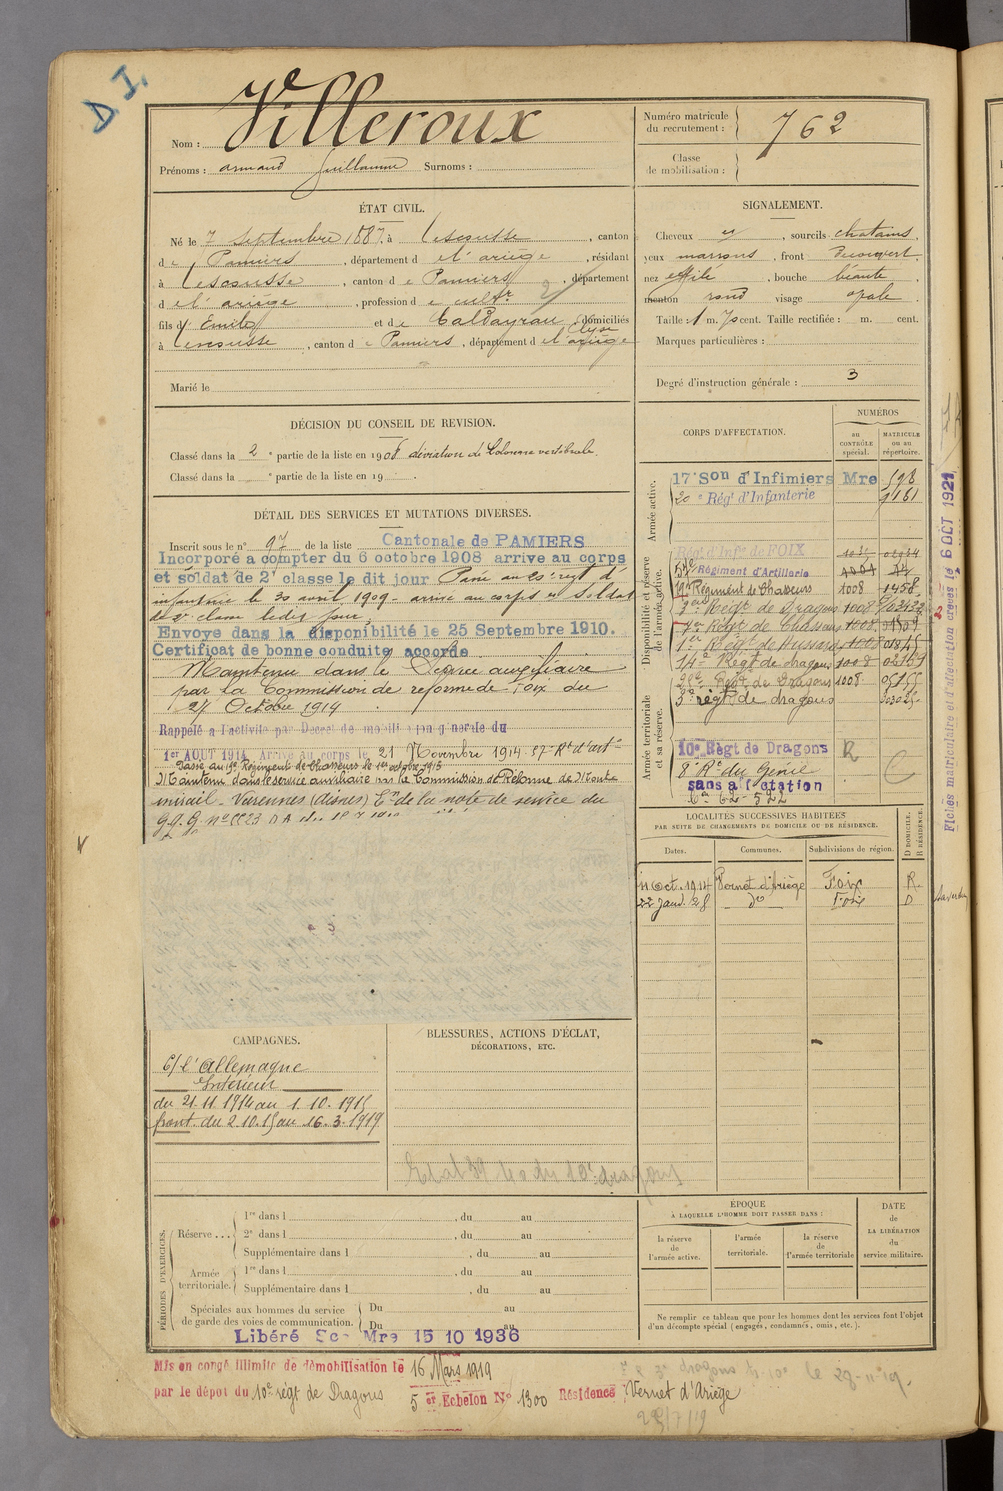 D. I.
Nom : Villeroux
Prénoms : armand Guillaume Surnoms :
Numéro matricule
du recrutement : 762
Classe
de mobilisation :
ÉTAT CIVIL.
Né le 7 Septembre 1887, à Lescousse, canton
de Pamiers, département de l'ariège, résidant
à Lescousse, canton de Pamiers, département
de l'ariège, profession de cultr
fils d' Emile et de Caldayrau Elyse, domiciliés
à Lescousse, canton de Pamiers, département de l'ariège
Marié le
SIGNALEMENT.
Cheveux et, sourcils chatains,
yeux marrons, front découvert,
nez effilé, bouche béante,
menton rond visage ovale
Taille : 1 m. 70 cent. Taille rectifiée : m. cent.
Marques particulières :
Degré d'instruction générale : 3
DÉCISION DU CONSEIL DE REVISION.
Classé dans la 2e partie de la liste en 1908 déviation de Colonne vertébrale.
Classé dans la e partie de la liste en 19 .
DÉTAIL DES SERVICES ET MUTATIONS DIVERSES.
Inscrit sous le n° 97 de la liste Cantonale de PAMIERS
Incorporé à compter du 6 octobre 1908 arrive au corps
et soldat de 2e classe le dit jour Passé au régt d'
infanterie le 30 avril 1909 - arrivé au corps et Soldat
de 2e classe ledit jour.
Envoyé dans la disponibilité le 25 Septembre 1910.
Certificat de bonne conduite accordé
Maintenu dans le Service auxiliaire
par la Commission de réforme de Foix du
Octobre 1914
Rappelé à l'activité par Décret de mobilisation générale du
1er AOUT 1914 Arrivé au corps le 21 Novembre 1914. 57e Rt d'artie
Passé au 19e Régiment de Chasseurs le 1er octobre 1915
Maintenu dans le service auxiliaire par la Commission de Réforme de
mirail - Varennes (aisne) En de la note de service du
G.Q.G. n°
CORPS D'AFFECTATION.
NUMÉROS
au
CONTRÔLE
spécial.
MATRICULE
ou au
répertoire.
Armée active.
17e Son d'Infirmiers Mre 598
e Régt d'Infanterie 9161
Disponibilité et réserve
de l'armée active.
Régt d'Infie de FOIX
57e Régiment d'Artillerie
19e Régiment de Chasseurs 1008 1458
Régt de Dragons 1008
Régt de Chasseurs 1008
1er Régt de Hussards 1008
14e Régt de dragons 1008
Régt de Dragons 1008
3e régt de dragons
Armée territoriale
et sa réserve.
10e Régt de Dragons R
8e Rt du Génie
sans affectation
Fiches matriculaire et d'affectation créées le 6 OCT 1921
LOCALITÉS SUCCESSIVES HABITÉES
PAR SUITE DE CHANGEMENTS DE DOMICILE OU DE RÉSIDENCE.
Dates. Communes. Subdivisions de région. D DOMICILE. R RÉSIDENCE.
11 Oct. 1914 Vernet d'Ariège Foix R.
22 janv. 28 do Foix D
CAMPAGNES.
C/ l'Allemagne
Intérieur
du 21.11.1914 au 1.10.1915
front du 2.10.15 au 16.3.1919
BLESSURES, ACTIONS D'ÉCLAT,
DÉCORATIONS, ETC.
PÉRIODES D'EXERCICES.
Réserve ...
1re dans l , du au
2e dans l , du au
Supplémentaire dans l , du au
Armée
territoriale.
1re dans l , du au
Supplémentaire dans l , du au
Spéciales aux hommes du service
de garde des voies de communication.
Du au
Du au
Libéré Sce Mre 15 10 1936
ÉPOQUE
À LAQUELLE L'HOMME DOIT PASSER DANS :
la réserve
de
l'armée active.
l'armée
territoriale.
la réserve
de
l'armée territoriale
DATE
de
LA LIBÉRATION
du
service militaire.
Ne remplir ce tableau que pour les hommes dont les services font l'objet
d'un décompte spécial (engagés, condamnés, omis, etc.).
Mis en congé illimité de démobilisation le 16 Mars 1919
par le dépôt du 10e régt de Dragons 5er Echelon N° 1300 Résidence : Vernet d'Ariège